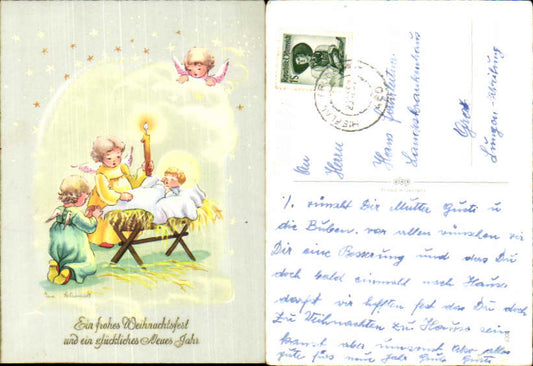 Ein frohes Weihnachtsfest
und ein glückliches Neues Jahr
An
Herrn
Hans
Landeskrankenhaus
Graz
Lungen-
1. wünscht Dir Mutter Gusti u
die Buben. vor allen wünschen wir
Dir eine Besserung und das Du
doch bald einmal nach Hause
darfst wir hofften fest das Du doch
zu Weihnachten zu Hause sein
kannst aber umsonst Also alles
gute fürs neue Jahr Gusti